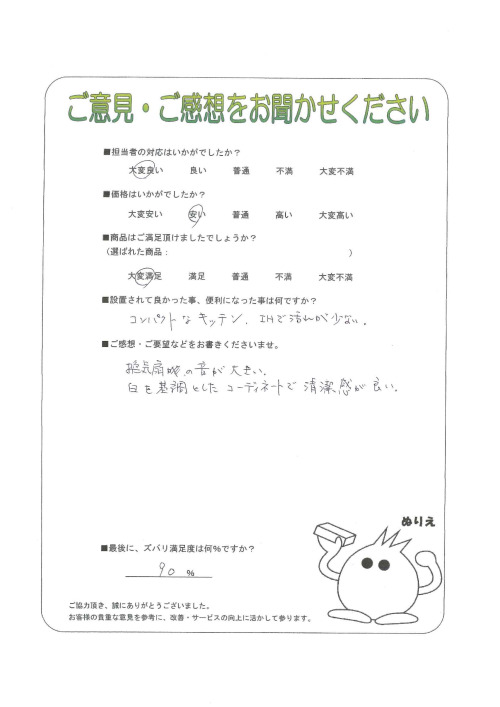 ご意見・ご感想をお聞かせください
■担当者の対応はいかがでしたか？
大変良い 良い 普通 不満 大変不満
■価格はいかがでしたか？
大変安い 安い 普通 高い 大変高い
■商品はご満足頂けましたでしょうか？
（選ばれた商品： ）
大変満足 満足 普通 不満 大変不満
■設置されて良かった事、便利になった事は何ですか？
コンパクトなキッチン、IHで汚れが少ない。
■ご感想・ご要望などをお書きくださいませ。
換気扇の音が大きい。
白を基調としたコーディネートで清潔感が良い。
ぬりえ
■最後に、ズバリ満足度は何％ですか？
90 ％
ご協力頂き、誠にありがとうございました。
お客様の貴重な意見を参考に、改善・サービスの向上に活かして参ります。